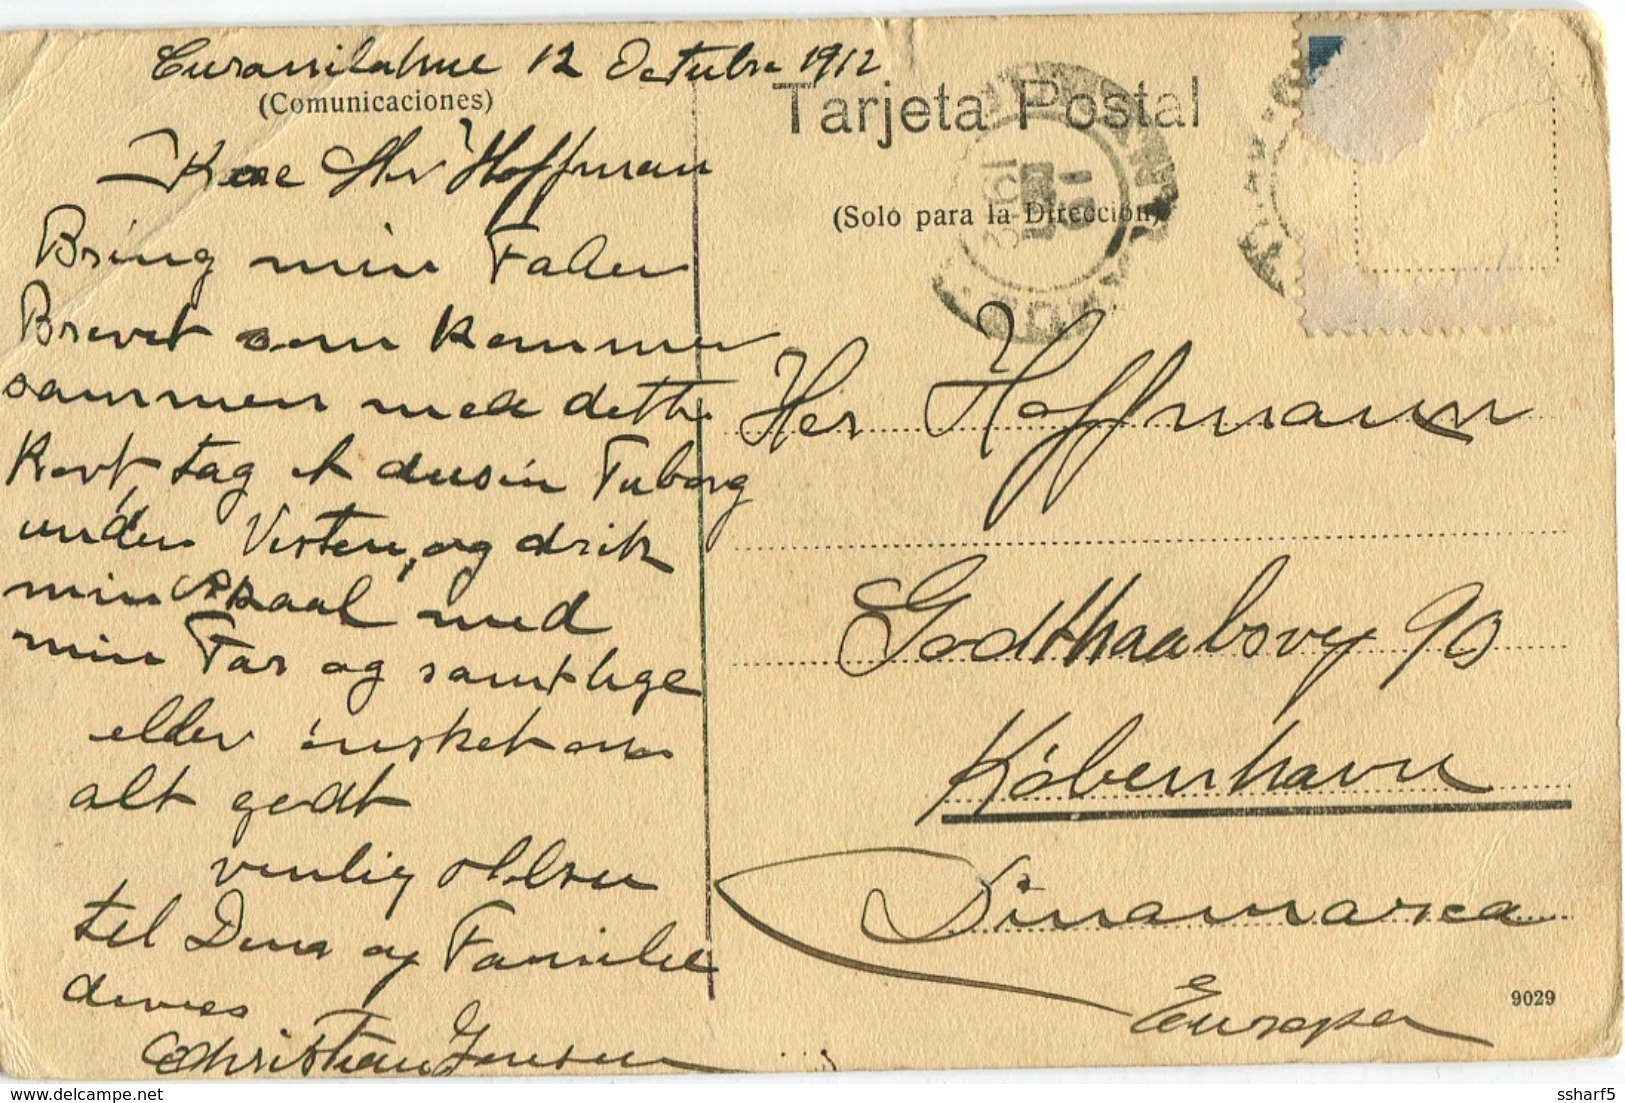 Curanilahue 12 Octubre 1912
(Comunicaciones)
Kære Hr Hoffman
Bring min Fader
Brevet som kommer
sammen med dette
Kort, tag et dusin Tuborg
under Vesten, og drik
min Skaal med
min Far og samtlige
elder ønsket om
alt godt
venlig Hilsen
til Dem og Familie
deres
Christian Jensen
Tarjeta Postal
(Solo para la Dirección)
Her Hoffmann
Godthaabsvej 90
København
Dinamarca
Europa
9029
ssharf5